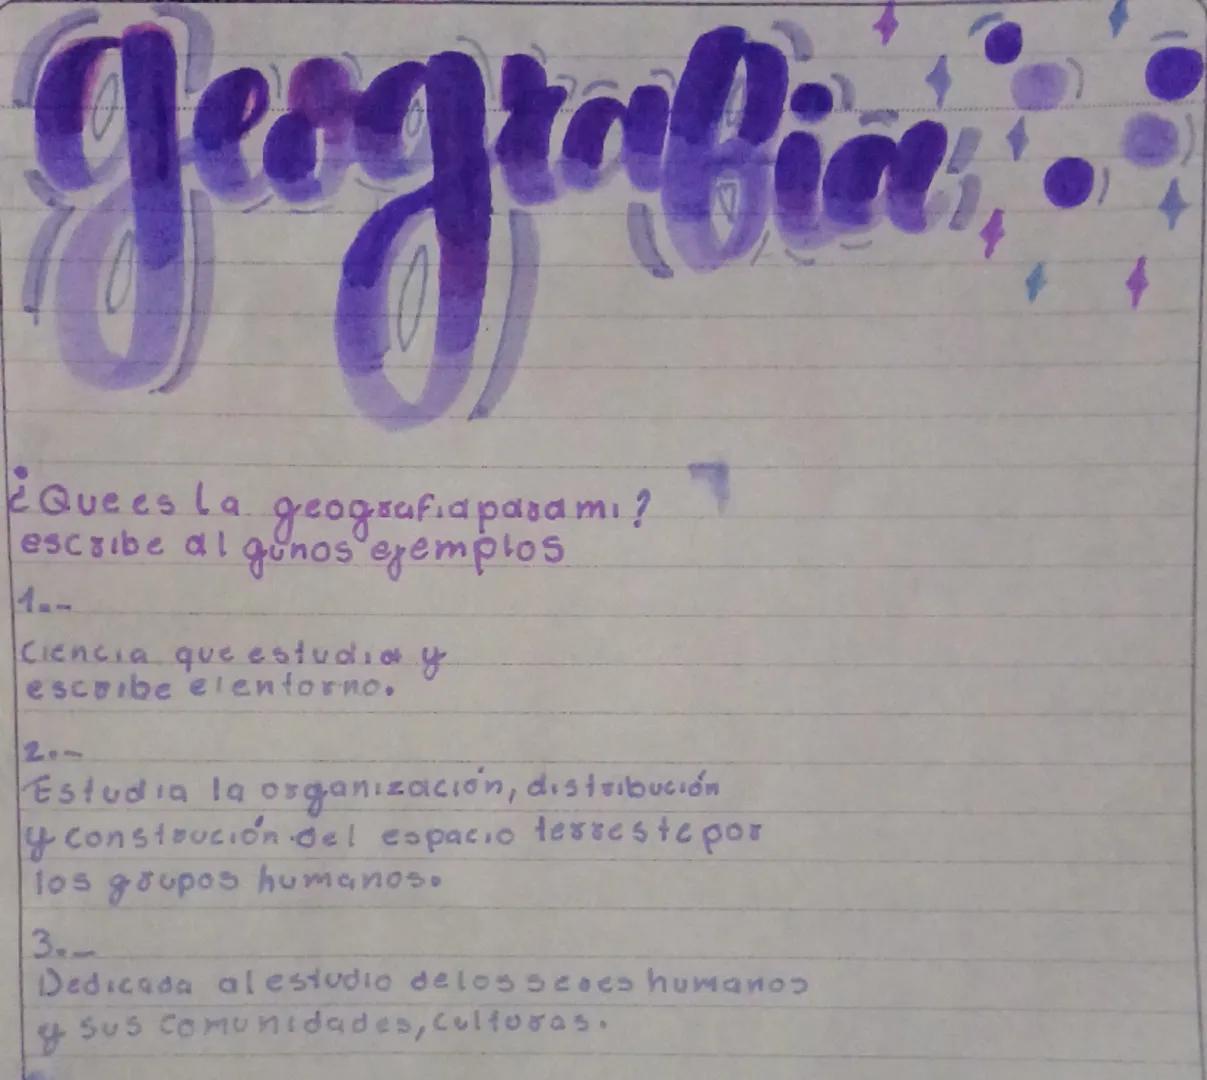 geografia
¿Que es la geografia para mi?
escribe algunos ejemplos
1.-
Ciencia que estudia y
escribe el entorno.
2.-
Estudia la organización, distribución
y construción del espacio terreste por
los grupos humanos.
3.-
Dedicada al estudio de los seres humanos
y sus comunidades, culturas.